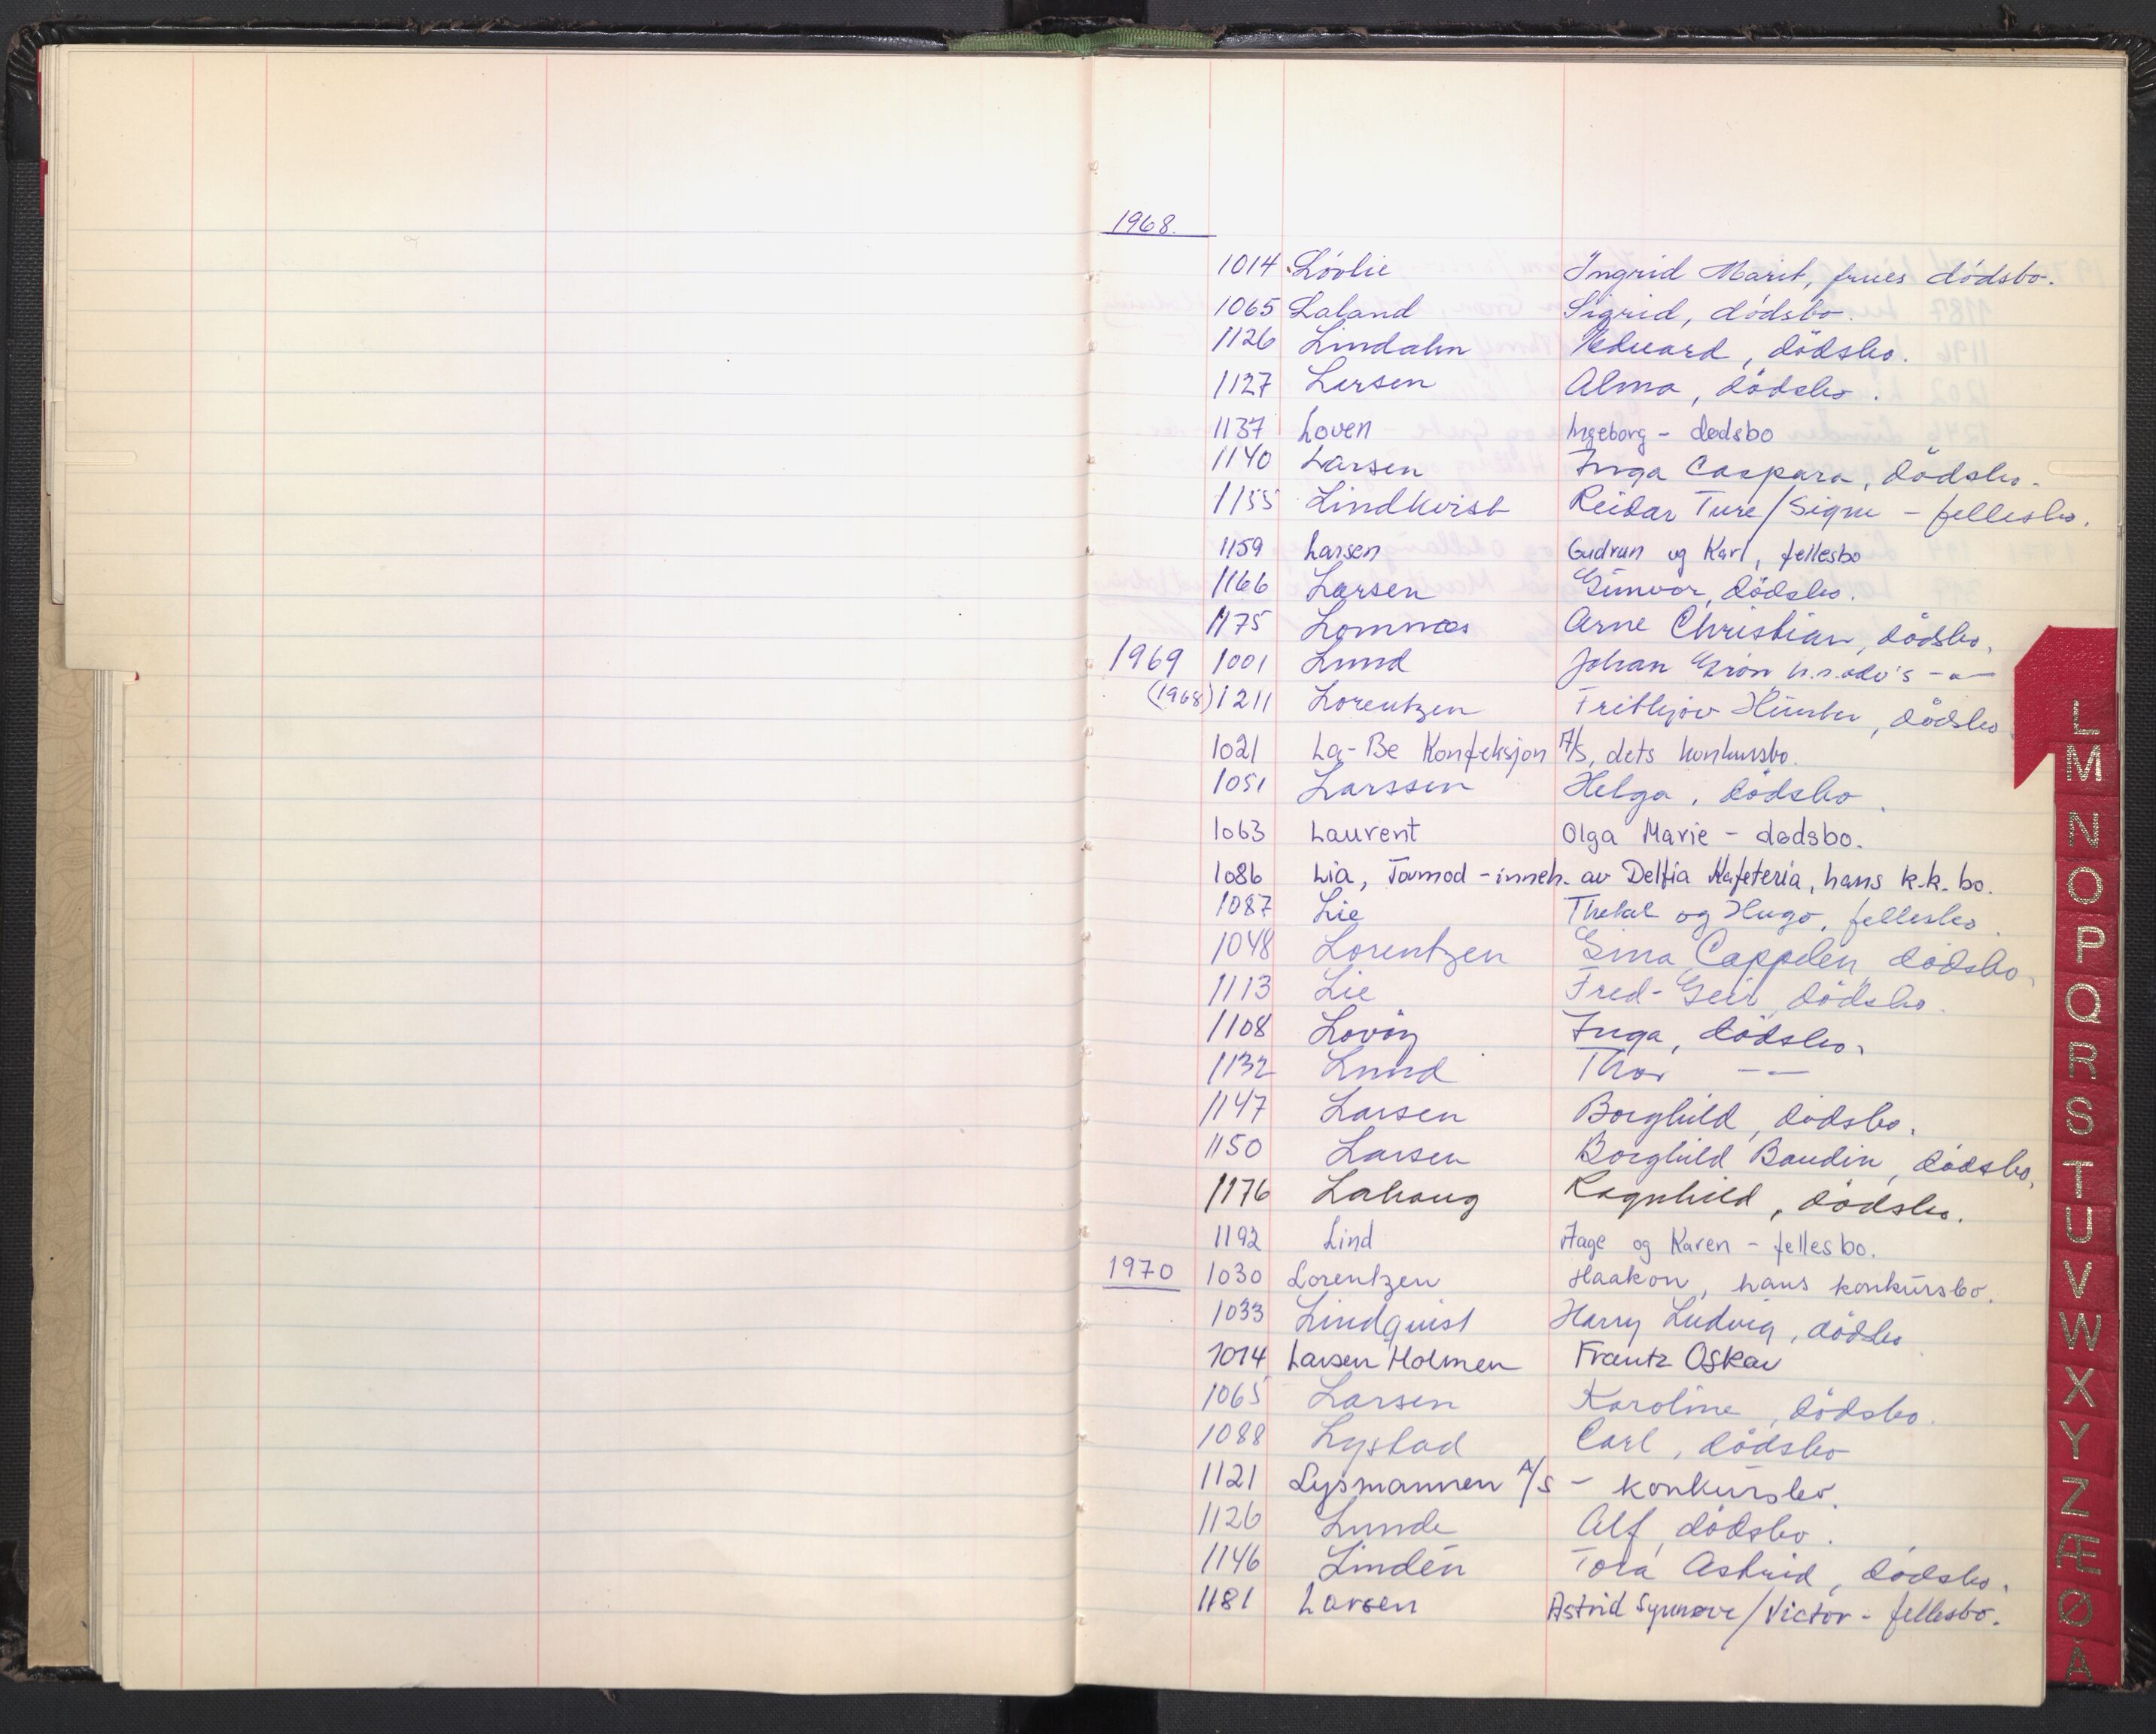 1968.
1014 Lövlie Ingrid Marit, frues dödsbo.
1065 Laland Sigrid, dödsbo.
1126 Lindahn Edvard, dödsbo.
1127 Larsen Alma, dödsbo.
1137 Loven Ingeborg - dødsbo
1140 Larsen Inga Caspara, dödsbo.
1155 Lindkvist Reidar Ture/Signe - fellesbo.
1159 Larsen Gudrun og Karl, fellesbo
1166 Larsen Gunvor, dödsbo.
1175 Lomnæs Arne Christian, dödsbo.
1969 1001 Lund Johan Grön h.r.adv's -"-
(1968) 1211 Lorentzen Frithjov Hünter, dödsbo
1021 La-Be Konfeksjon A/S, dets konkursbo.
1051 Larssen Helga, dödsbo.
1063 Laurent Olga Marie - dødsbo.
1086 Lia, Tormod - inneh. av Delfia Kafeteria, hans k.k. bo.
1087 Lie og Hugo, fellesbo.
1048 Lorentzen Gina Cappelen, dödsbo.
1113 Lie Fred-Geir, dödsbo.
1108 Inga, dödsbo.
1132 Lund Thor -"-
1147 Larsen Borghild, dödsbo.
1150 Larsen Borghild Baudin, dödsbo.
1176 Lahaug Ragnhild, dödsbo.
1192 Lind Aage og Karen - fellesbo.
1970 1030 Lorentzen Haakon, hans konkursbo.
1033 Lindquist Harry Ludvig, dödsbo
1014 Larsen Holmen Frantz Oskar
1065 Larsen Karoline, dödsbo.
1088 Lystad Carl, dödsbo
1121 Lysmannen A/S - konkursbo.
1126 Lunde Alf, dödsbo.
1146 Lindén Tora Astrid, dödsbo.
1181 Larsen Astrid Synnøve/Victor - fellesbo.
L
M
N
O
P
Q
R
S
T
U
V
W
X
Y
Z
Æ
Ø
Å